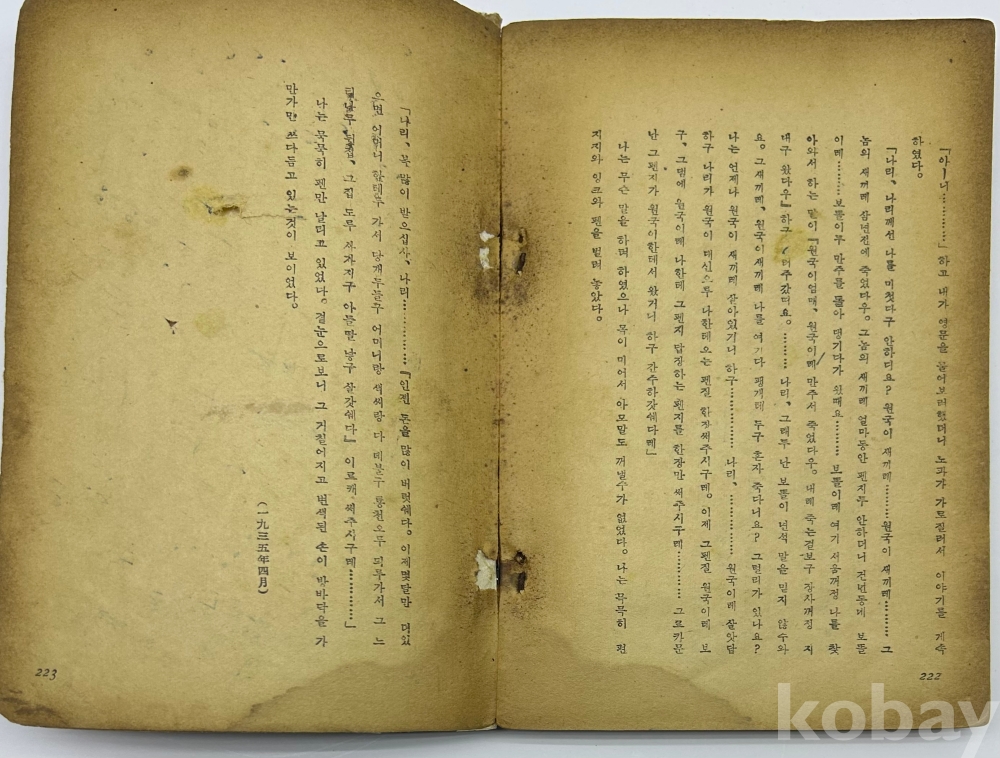 「아ー니…………」 하고 내가 영문을 물어보려했더니 노파가 가로질러서 이야기를 계속
하였다。
「나리、나리께선 나를 미첫다구 안하디요? 원국이 새끼레………원국이 새끼레………그
놈의 새끼레 삼년전에 죽었다우。그놈의 새끼레 얼마동안 펜지두 안하더니 건넌동네 보뜰
이레………보뜰이두 만주를 돌아 댕기다가 왔때요………보뜰이레 여기 서음꺼정 나를 찾
아와서 하는 말이 『원국이엄매、원국이레 만주서 죽었다우。내레 죽는걸보구 장사꺼정 지
내구 왔다우』하구 가더
요。그새끼레、원국이새끼레 나를 여기다 팽개테 두구 혼자 죽다니요? 그럴리가 있나요?
나는 언제나 원국이 새끼레 살아있거니 하구…………나리、…………원국이레 살앗답
하구 나리가 원국이 대신으루 나한테오는 펜질 한장써주시구레。이제 그펜질 원국이레 보
구、그댐에 원국이레 나한테 그펜지 답장하는 펜지를 한장만 써주시구레………그르카문
난 그펜지가 원국이한테서 왔거니 하구 간주하갓쉐다레」
나는 무슨 말을 하며 하였으나 목이 미어서 아모말도 꺼낼수가 없었다。나는 묵묵히 편
지지와 잉크와 펜을 벌려 놓았다。
222
「나리、복 많이 받으십사、나리…………『인젠 돈을 많이 버럿쉐다。이제몇달만 더있
으면 어머니 한테루 가서 당개두들구 어머니랑 색씨랑 다 데불구 룡천으루 되루가서 그 느
티남무 집、그집 도루 사가지구 아들딸 낳구 살갓쉐다』 이르캐 써주시구레…………」
나는 묵묵히 펜만 날리고 있었다。곁눈으로보니 그 거칠어지고 변색된 손이 방바닥을 가
만가만 쓰다듬고 있는것이 보이었다。
(一九三五年四月)
223
kobay